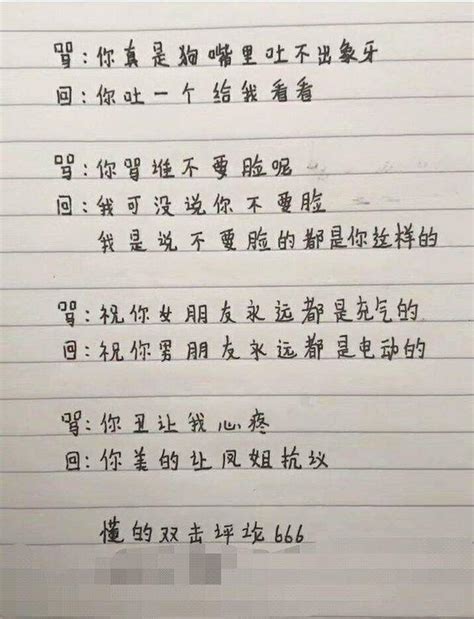 骂:你真是狗嘴里吐不出象牙
回:你吐一个给我看看
骂:你骂谁不要脸呢
回:我可没说你不要脸
我是说不要脸的都是你这样的
骂:祝你女朋友永远都是充气的
回:祝你男朋友永远都是电动的
骂:你丑让我心疼
回:你美的让凤姐抗议
懂的双击评论666